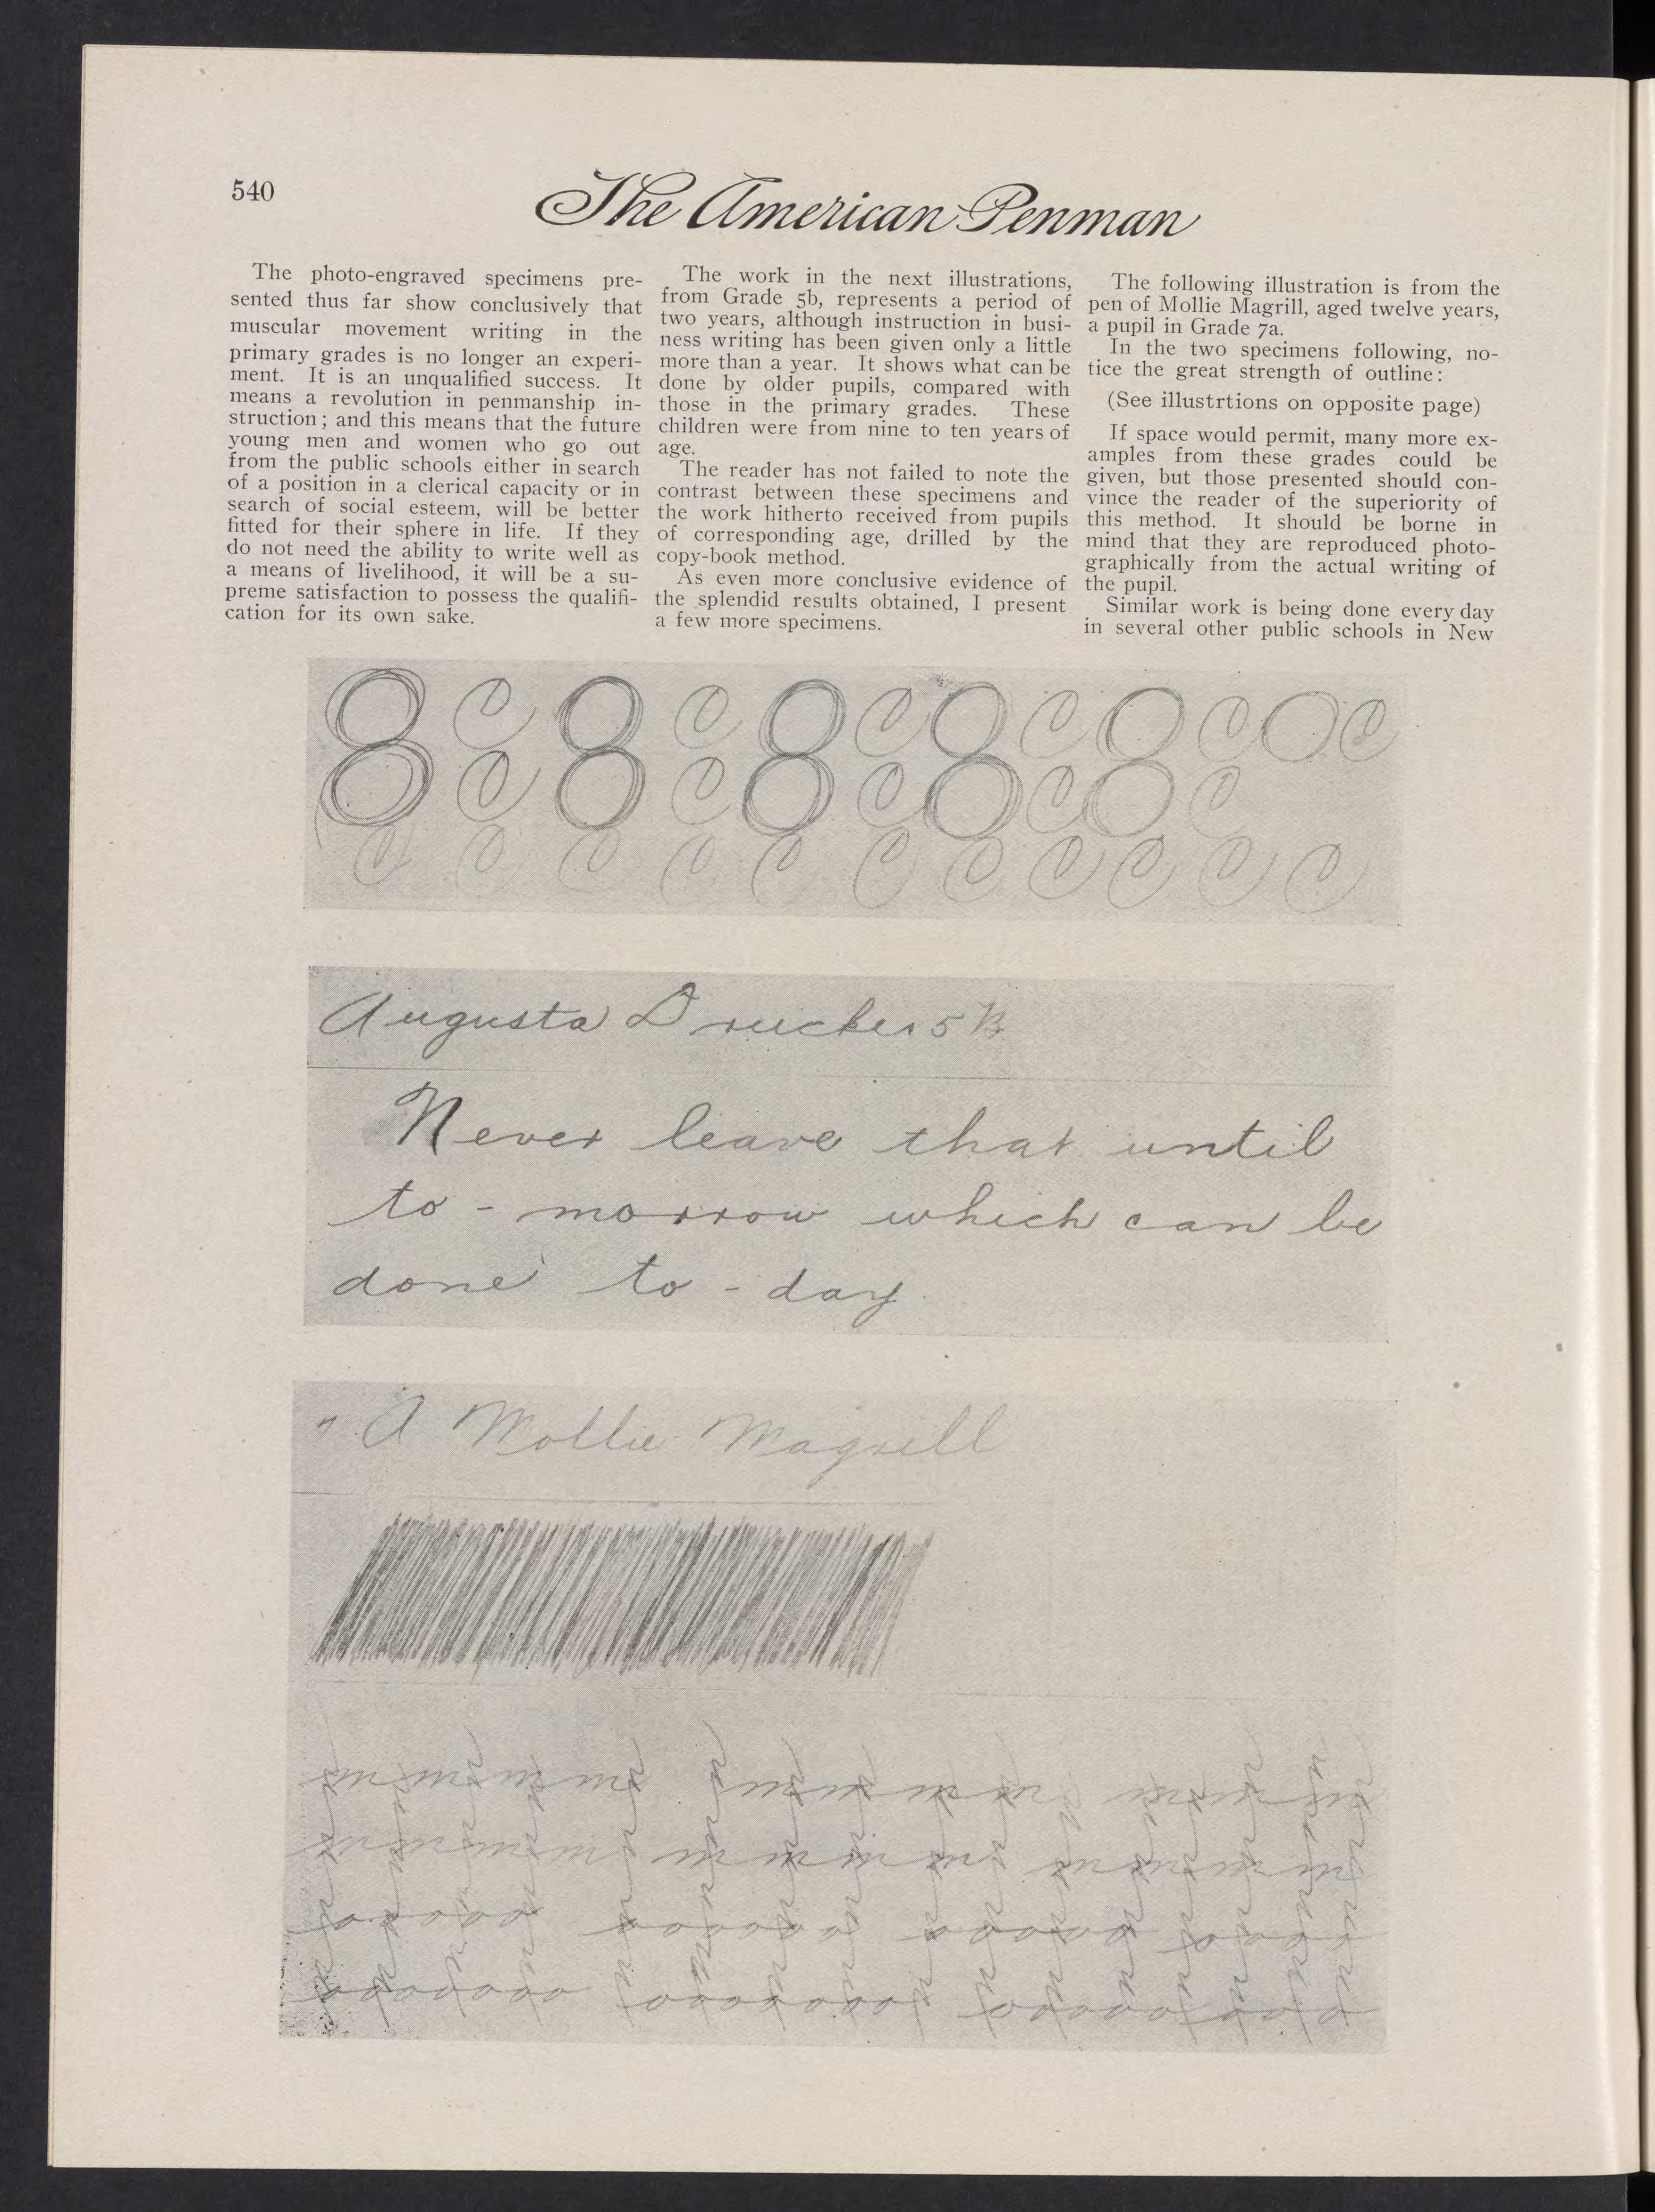 540
The American Penman
The photo-engraved specimens pre-
sented thus far show conclusively that
muscular movement writing in the
primary grades is no longer an experi-
ment. It is an unqualified success. It
means a revolution in penmanship in-
struction; and this means that the future
young men and women who go out
from the public schools either in search
of a position in a clerical capacity or in
search of social esteem, will be better
fitted for their sphere in life. If they
do not need the ability to write well as
a means of livelihood, it will be a su-
preme satisfaction to possess the qualifi-
cation for its own sake.
The work in the next illustrations,
from Grade 5b, represents a period of
two years, although instruction in busi-
ness writing has been given only a little
more than a year. It shows what can be
done by older pupils, compared with
those in the primary grades. These
children were from nine to ten years of
age.
The reader has not failed to note the
contrast between these specimens and
the work hitherto received from pupils
of corresponding age, drilled by the
copy-book method.
As even more conclusive evidence of
the splendid results obtained, I present
a few more specimens.
The following illustration is from the
pen of Mollie Magrill, aged twelve years,
a pupil in Grade 7a.
In the two specimens following, no-
tice the great strength of outline:
(See illustrtions on opposite page)
If space would permit, many more ex-
amples from these grades could be
given, but those presented should con-
vince the reader of the superiority of
this method. It should be borne in
mind that they are reproduced photo-
graphically from the actual writing of
the pupil.
Similar work is being done every day
in several other public schools in New
Augusta Drucker 5B
Never leave that until
to-morrow which can be
done to-day.
7 A Mollie Magrill